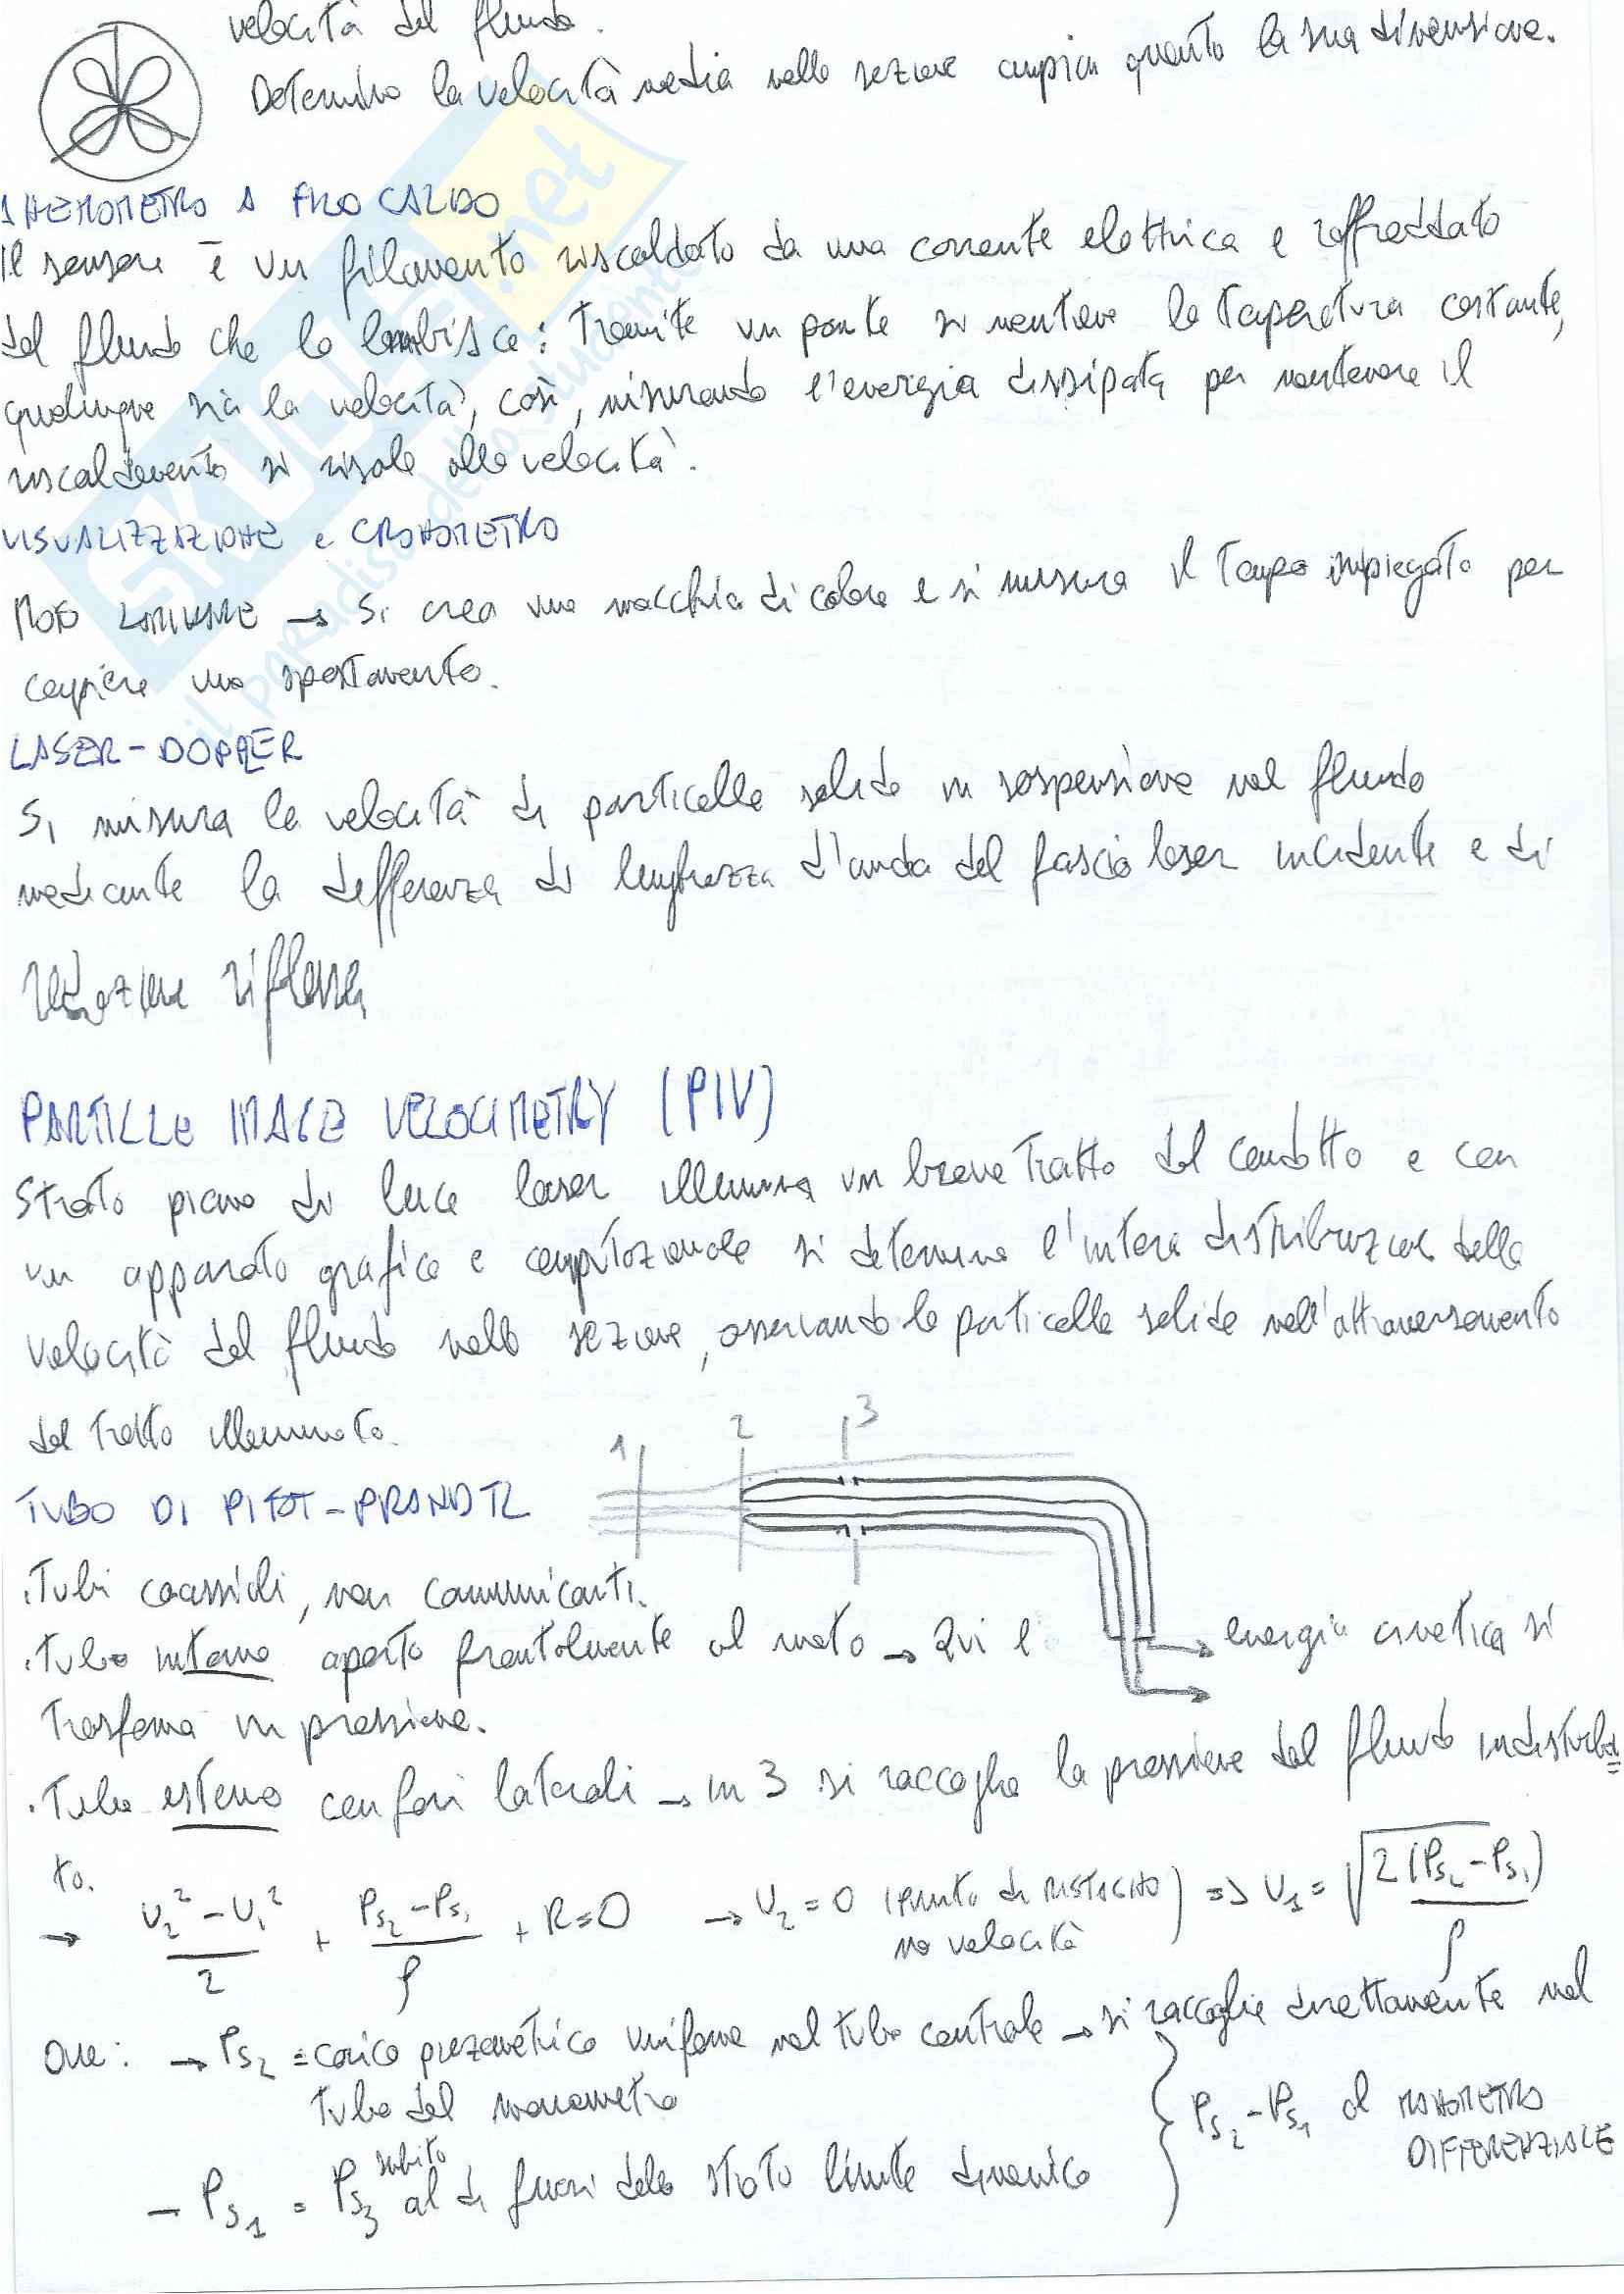 velocità del fluido.
Determino la velocità media nella sezione ampia quanto la sua dimensione.
ANEMOMETRO A FILO CALDO
Il sensore è un filamento riscaldato da una corrente elettrica e raffreddato
dal fluido che lo lambisce: tramite un ponte si mantiene la temperatura costante,
qualunque sia la velocità, così, misurando l'energia dissipata per mantenere il
riscaldamento si risale alla velocità.
VISUALIZZAZIONE e CRONOMETRO
MOTO LAMINARE → Si crea una macchia di colore e si misura il tempo impiegato per
compiere uno spostamento.
LASER-DOPPLER
Si misura la velocità di particelle solide in sospensione nel fluido
mediante la differenza di lunghezza d'onda del fascio laser incidente e di
radiazione riflessa
PARTICLE IMAGE VELOCIMETRY (PIV)
Strato piano di luce laser illumina un breve tratto del condotto e con
un apparato grafico e computazionale si determina l'intera distribuzione della
velocità del fluido nella sezione, osservando le particelle solide nell'attraversamento
del tratto illuminato.
1 2 3
TUBO DI PITOT-PRANDTL
. Tubi coassiali, non comunicanti.
. Tubo interno aperto frontalmente al moto → Qui l' energia cinetica si
trasforma in pressione.
. Tubo esterno con fori laterali → in 3 si raccoglie la pressione del fluido indisturba=
to.
→ (U₂² - U₁²)/2 + (Ps₂ - Ps₁)/ρ + R=0 → U₂ = 0 (PUNTO DI RISTAGNO) => U₁ = √(2(Ps₂ - Ps₁)/ρ)
no velocità
Ove: → Ps₂ = carico piezometrico uniforme nel tubo centrale → si raccoglie direttamente nel
tubo del manometro
Ps₂ - Ps₁ al MANOMETRO
DIFFERENZIALE
- Ps₁ = Ps₃ subito al di fuori dello strato limite dinamico
SKUOLA.net
il paradiso dello studente